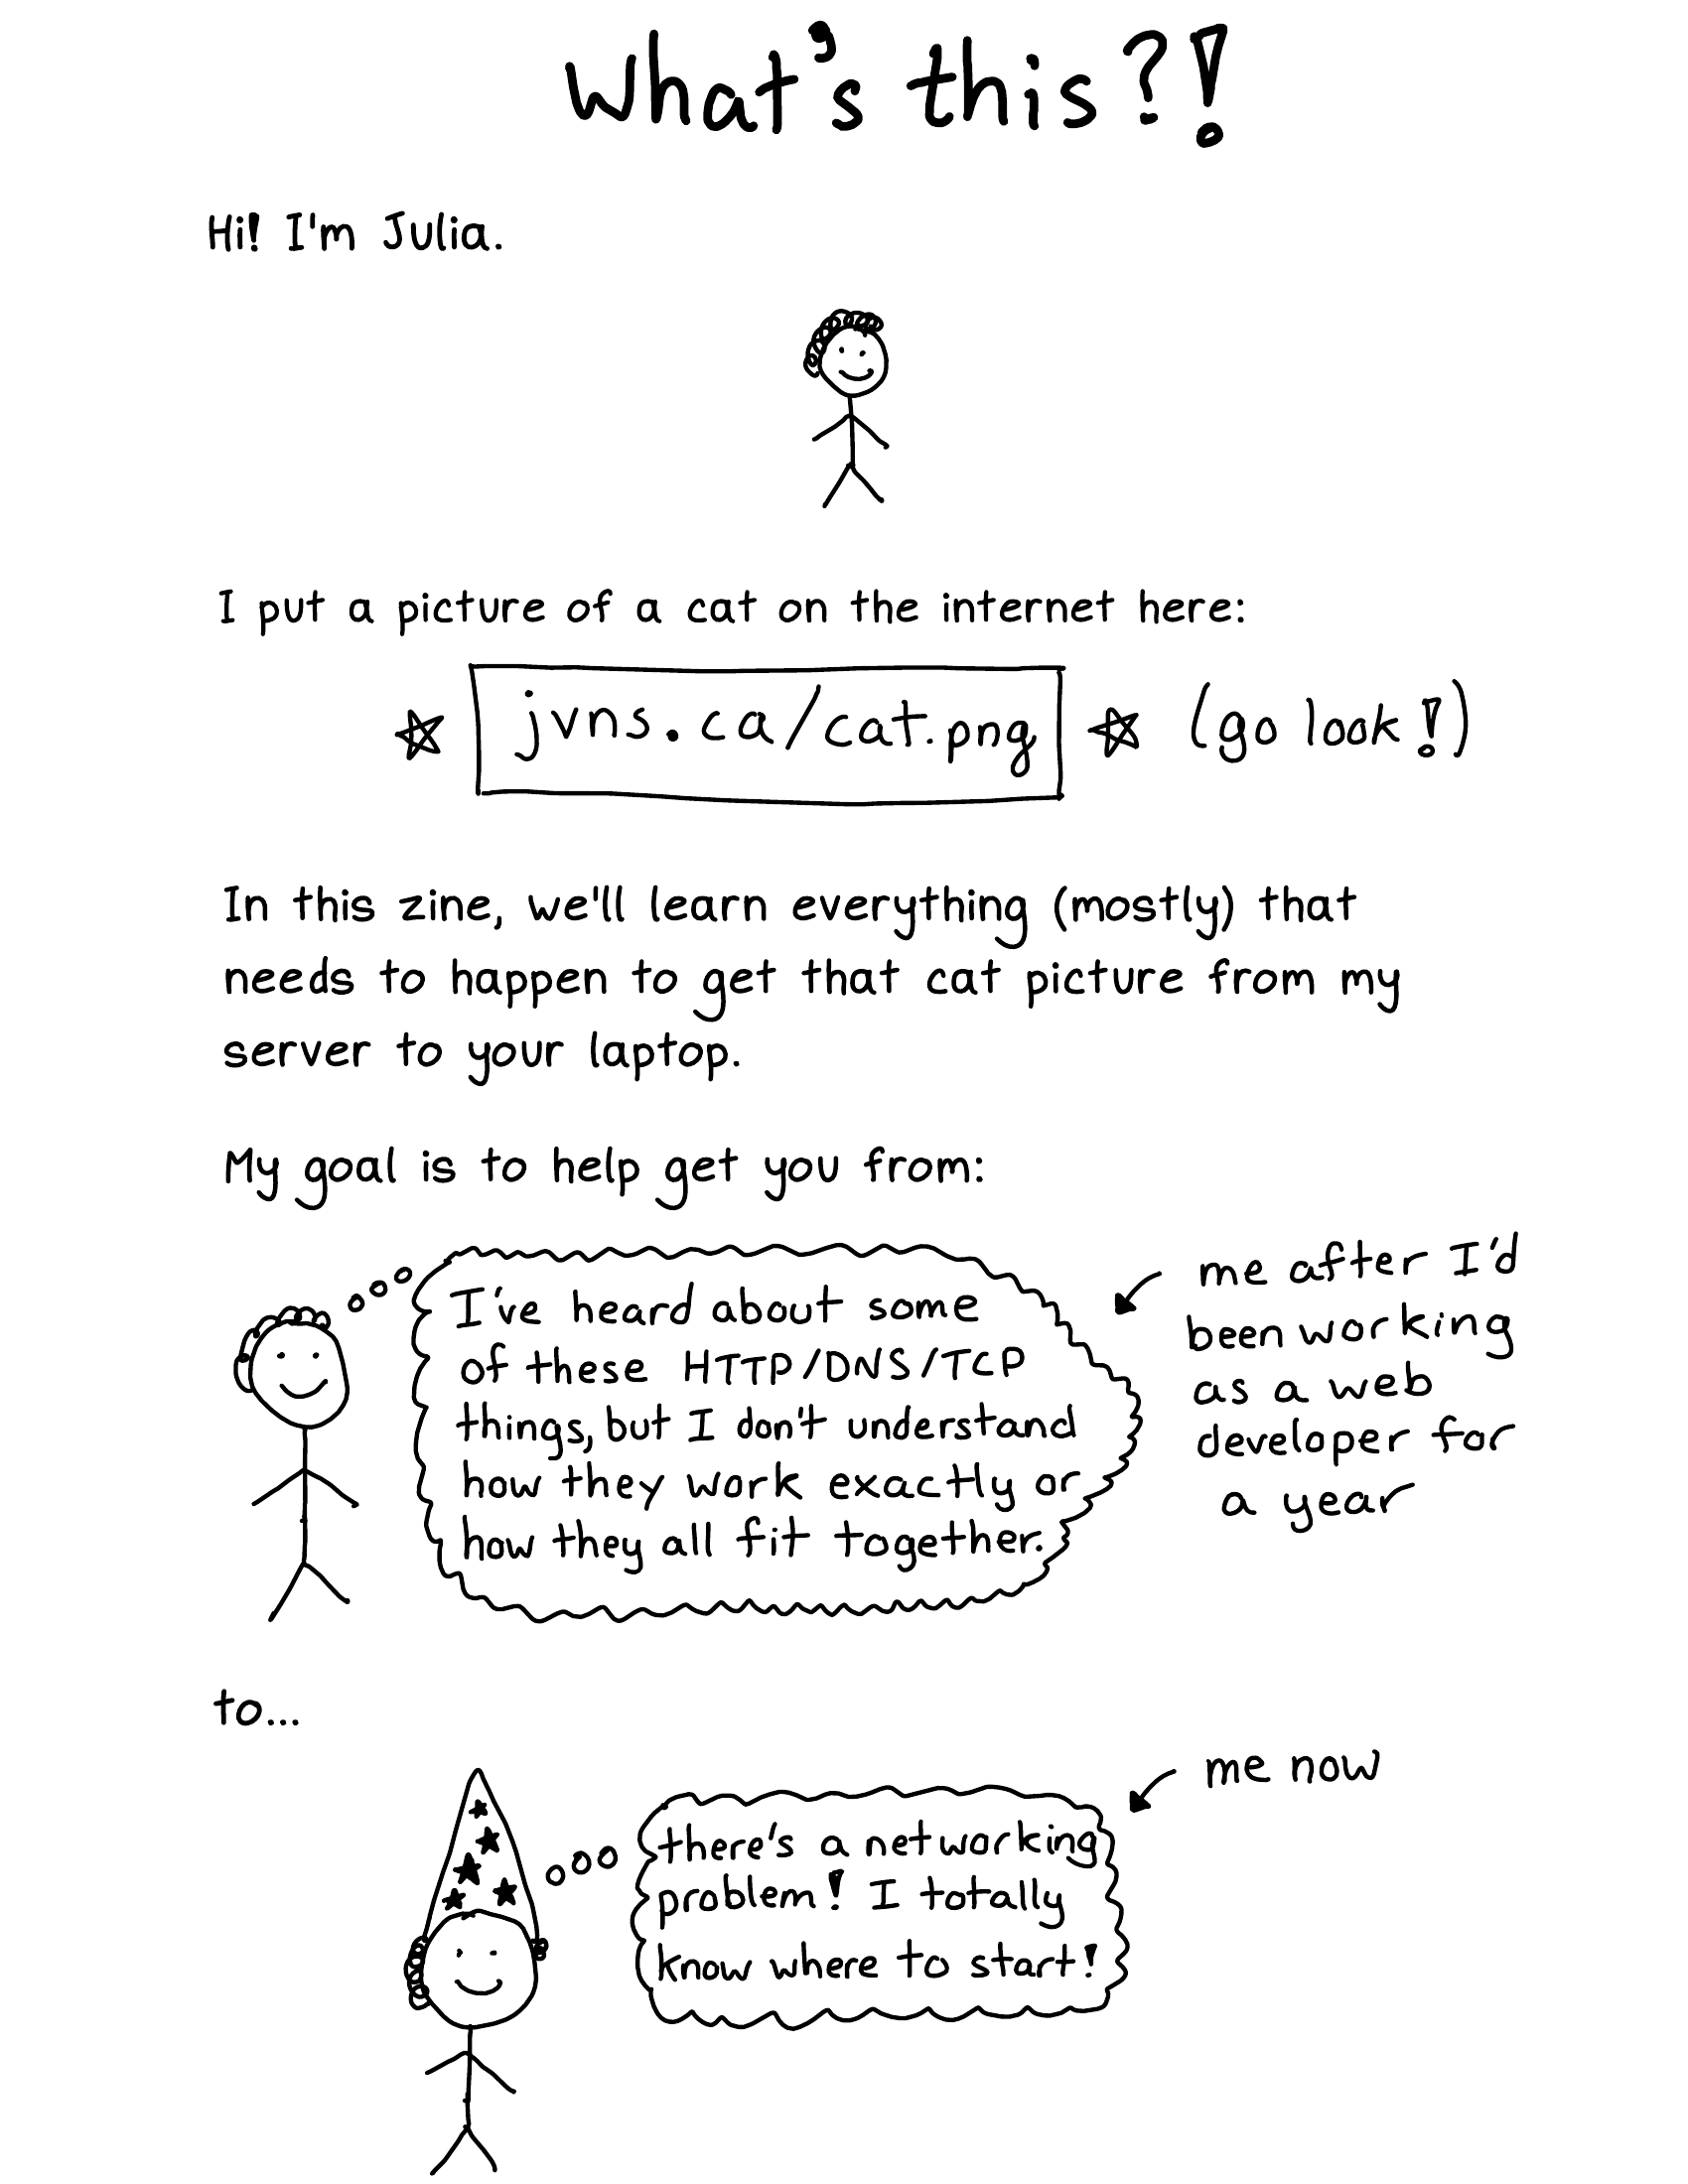 What's this?!
Hi! I'm Julia.
I put a picture of a cat on the internet here:
jvns.ca/cat.png (go look!)
In this zine, we'll learn everything (mostly) that
needs to happen to get that cat picture from my
server to your laptop.
My goal is to help get you from:
I've heard about some
of these HTTP/DNS/TCP
things, but I don't understand
how they work exactly or
how they all fit together.
me after I'd
been working
as a web
developer for
a year
to...
there's a networking
problem! I totally
know where to start!
me now